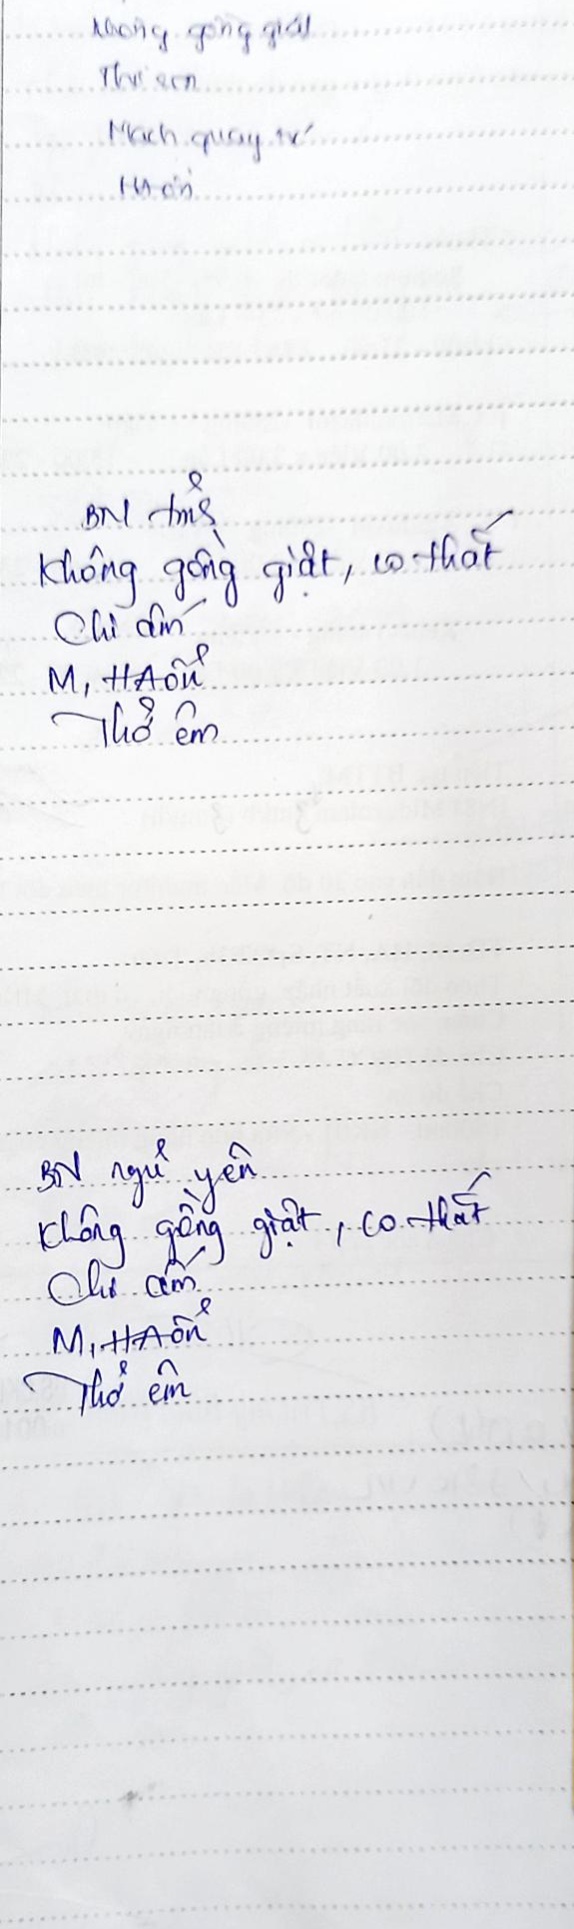 Không gồng giật
Thở êm
Mạch quay rõ
HA ổn
BN tỉnh
Không gồng giật, co thắt
Chi ấm
M, HA ổn
Thở êm
BN ngủ yên
Không gồng giật, co thắt
Chi ấm
M, HA ổn
Thở êm